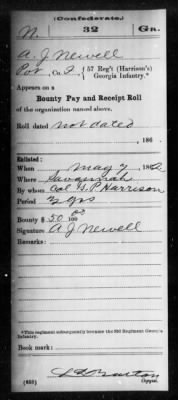 (Confederate.)
N. 32 Ga.
A. J. Newell
Pvt, Co. I, 57 Reg't (Harrison's) Georgia Infantry.*
Appears on a
Bounty Pay and Receipt Roll
of the organization named above.
Roll dated not dated, 186 .
Enlisted:
When May 7, 1862
Where Savannah
By whom Col. G. P. Harrison
Period 3 yrs
Bounty $ 50 00/100
Signature A J Newell
Remarks:
*This regiment subsequently became the 32d Regiment Georgia Infantry.
Book mark:
Copyist.